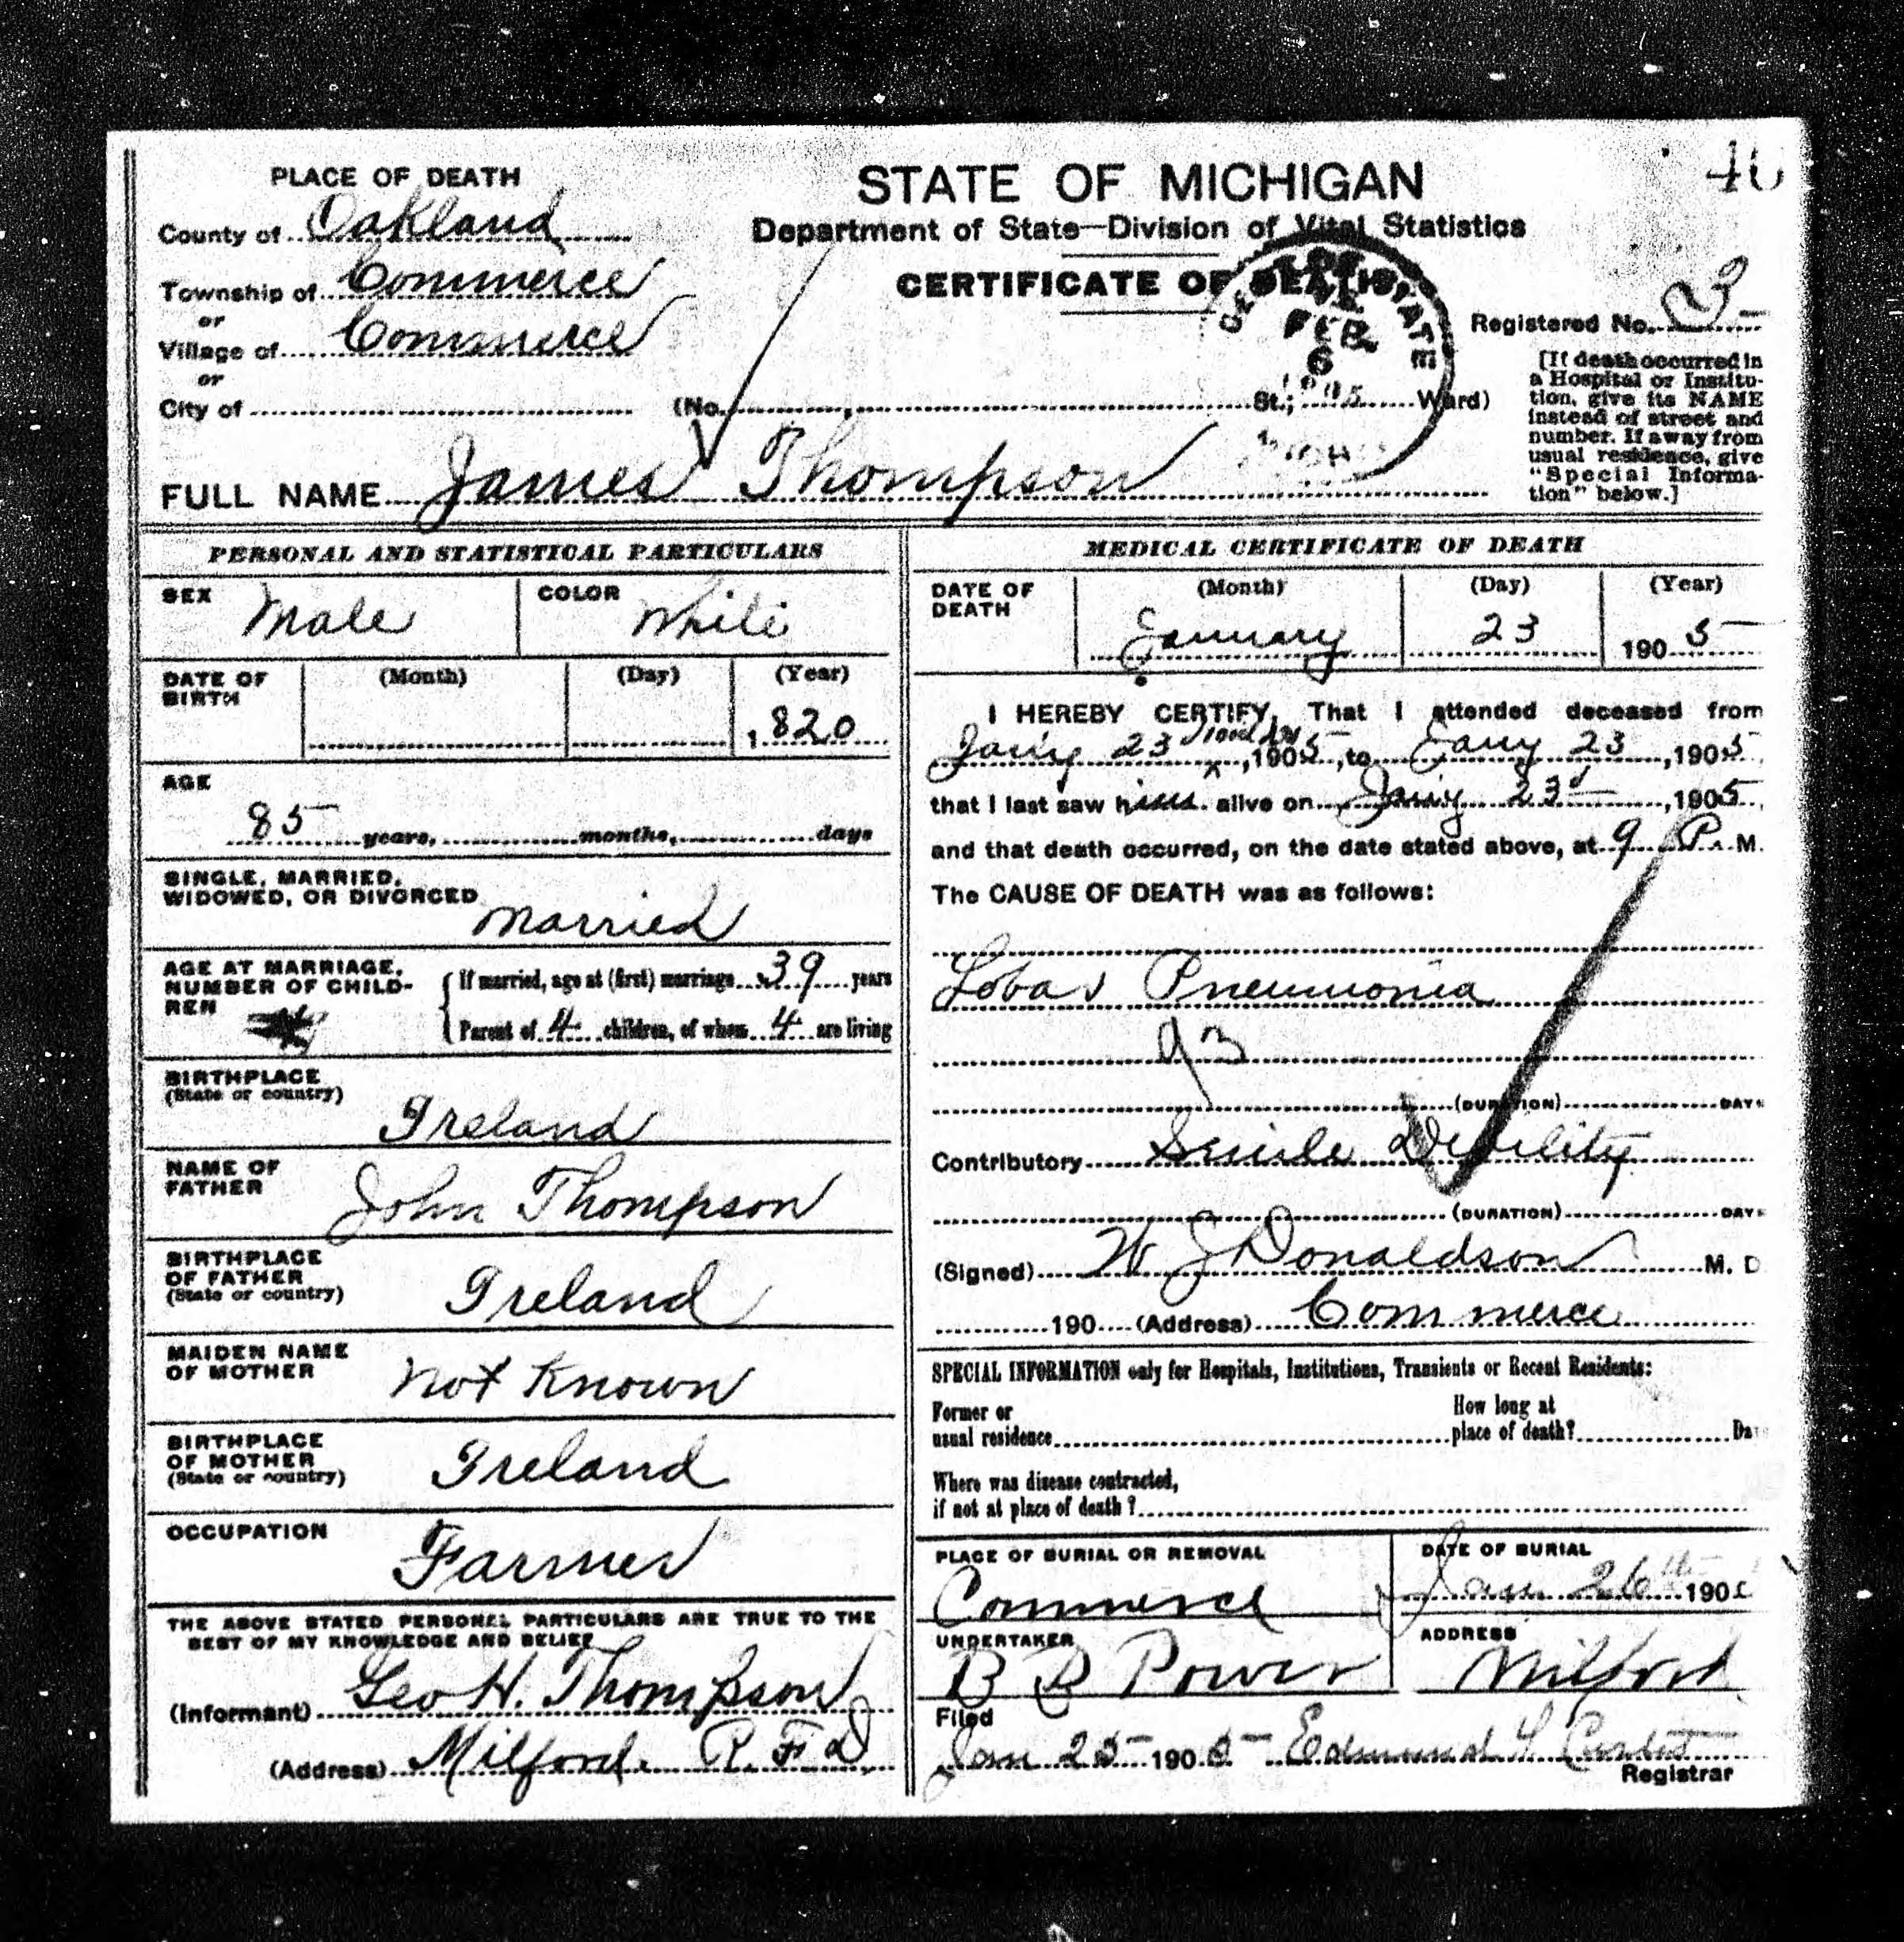 PLACE OF DEATH
County of Oakland
Township of Commerce
or
Village of Commerce
or
City of
STATE OF MICHIGAN
Department of State—Division of Vital Statistics
CERTIFICATE OF DEATH
FEB
6
1905
(No. , St.; Ward)
Registered No. 3
[If death occurred in
a Hospital or Institu-
tion, give its NAME
instead of street and
number. If away from
usual residence, give
"Special Informa-
tion" below.]
FULL NAME James Thompson
PERSONAL AND STATISTICAL PARTICULARS
SEX Male
COLOR White
DATE OF
BIRTH
(Month) (Day) (Year)
1820
AGE
85 years, months, days
SINGLE, MARRIED,
WIDOWED, OR DIVORCED
Married
AGE AT MARRIAGE,
NUMBER OF CHILD-
REN
If married, age at (first) marriage 39 years
Parent of 4 children, of whom 4 are living
BIRTHPLACE
(State or country)
Ireland
NAME OF
FATHER
John Thompson
BIRTHPLACE
OF FATHER
(State or country)
Ireland
MAIDEN NAME
OF MOTHER
Not Known
BIRTHPLACE
OF MOTHER
(State or country)
Ireland
OCCUPATION
Farmer
THE ABOVE STATED PERSONEL PARTICULARS ARE TRUE TO THE
BEST OF MY KNOWLEDGE AND BELIEF
(Informant) Geo H. Thompson
(Address) Milford. R. F D
MEDICAL CERTIFICATE OF DEATH
DATE OF
DEATH
(Month) (Day) (Year)
January 23 1905
I HEREBY CERTIFY, That I attended deceased from
Jany 23, 1905, to Jany 23, 1905,
that I last saw him alive on Jany 23d, 1905,
and that death occurred, on the date stated above, at 9 P. M.
The CAUSE OF DEATH was as follows:
Lobar Pneumonia
93
(DURATION) DAYS
Contributory Senile Debility
(DURATION) DAYS
(Signed) W J Donaldson M. D
190 (Address) Commerce
SPECIAL INFORMATION only for Hospitals, Institutions, Transients or Recent Residents:
Former or
usual residence
How long at
place of death? Days
Where was disease contracted,
if not at place of death?
PLACE OF BURIAL OR REMOVAL
Commerce
DATE OF BURIAL
Jan 26th 190
UNDERTAKER
B B Power
ADDRESS
Milford
Filed
Jan 25 1905 Edmund
Registrar